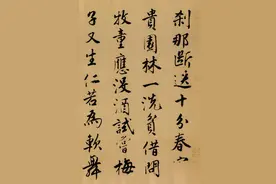 刹那断送十分春富
貴園林一洗貧借問
牧童應没酒試嘗梅
子又生仁若為軟舞